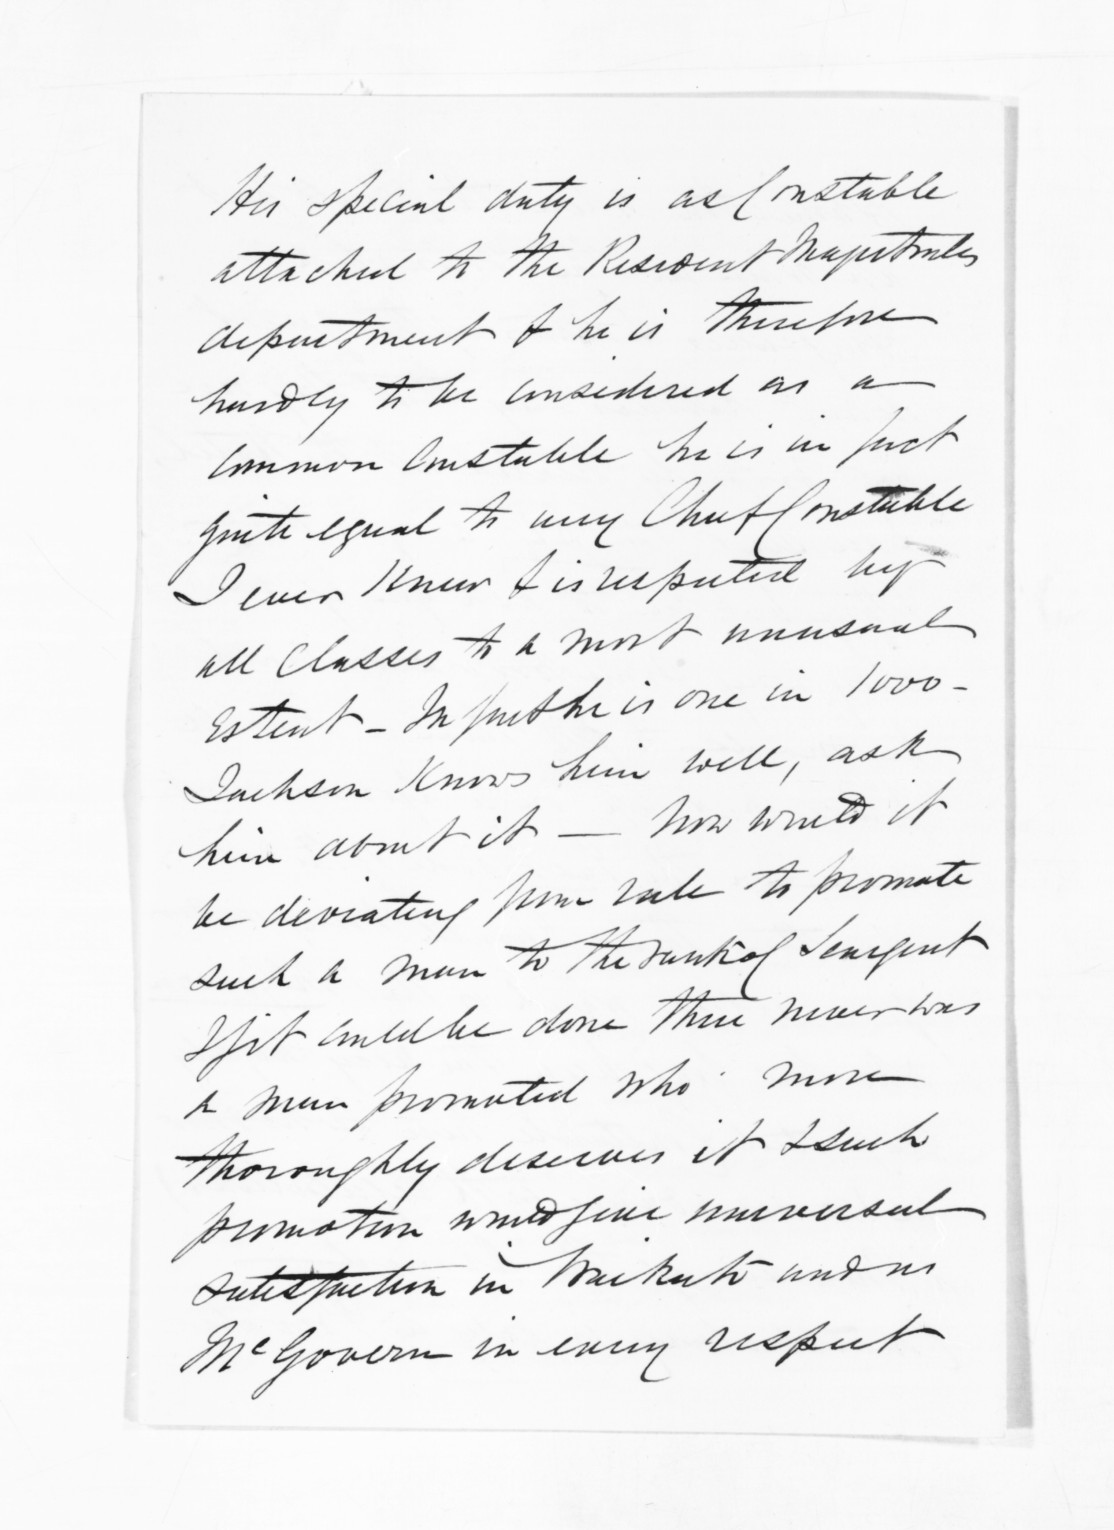 His special duty is as Constable
attached to the Resident Magistrates
department & he is therefore
hardly to be considered as a
common Constable he is in fact
quite equal to any Chief Constable
I ever knew & is respected by
all Classes to a most unusual
Extent – In fact he is one in 1000 –
Jackson Knows him well, ask
him about it — Now would it
be deviating from rule to promote
such a man to the rank of Seargent
If it could be done there never was
a man promoted who more
thoroughly deserves it & such
promotion would give universal
satisfaction in Waikato and as
McGovern in every respect